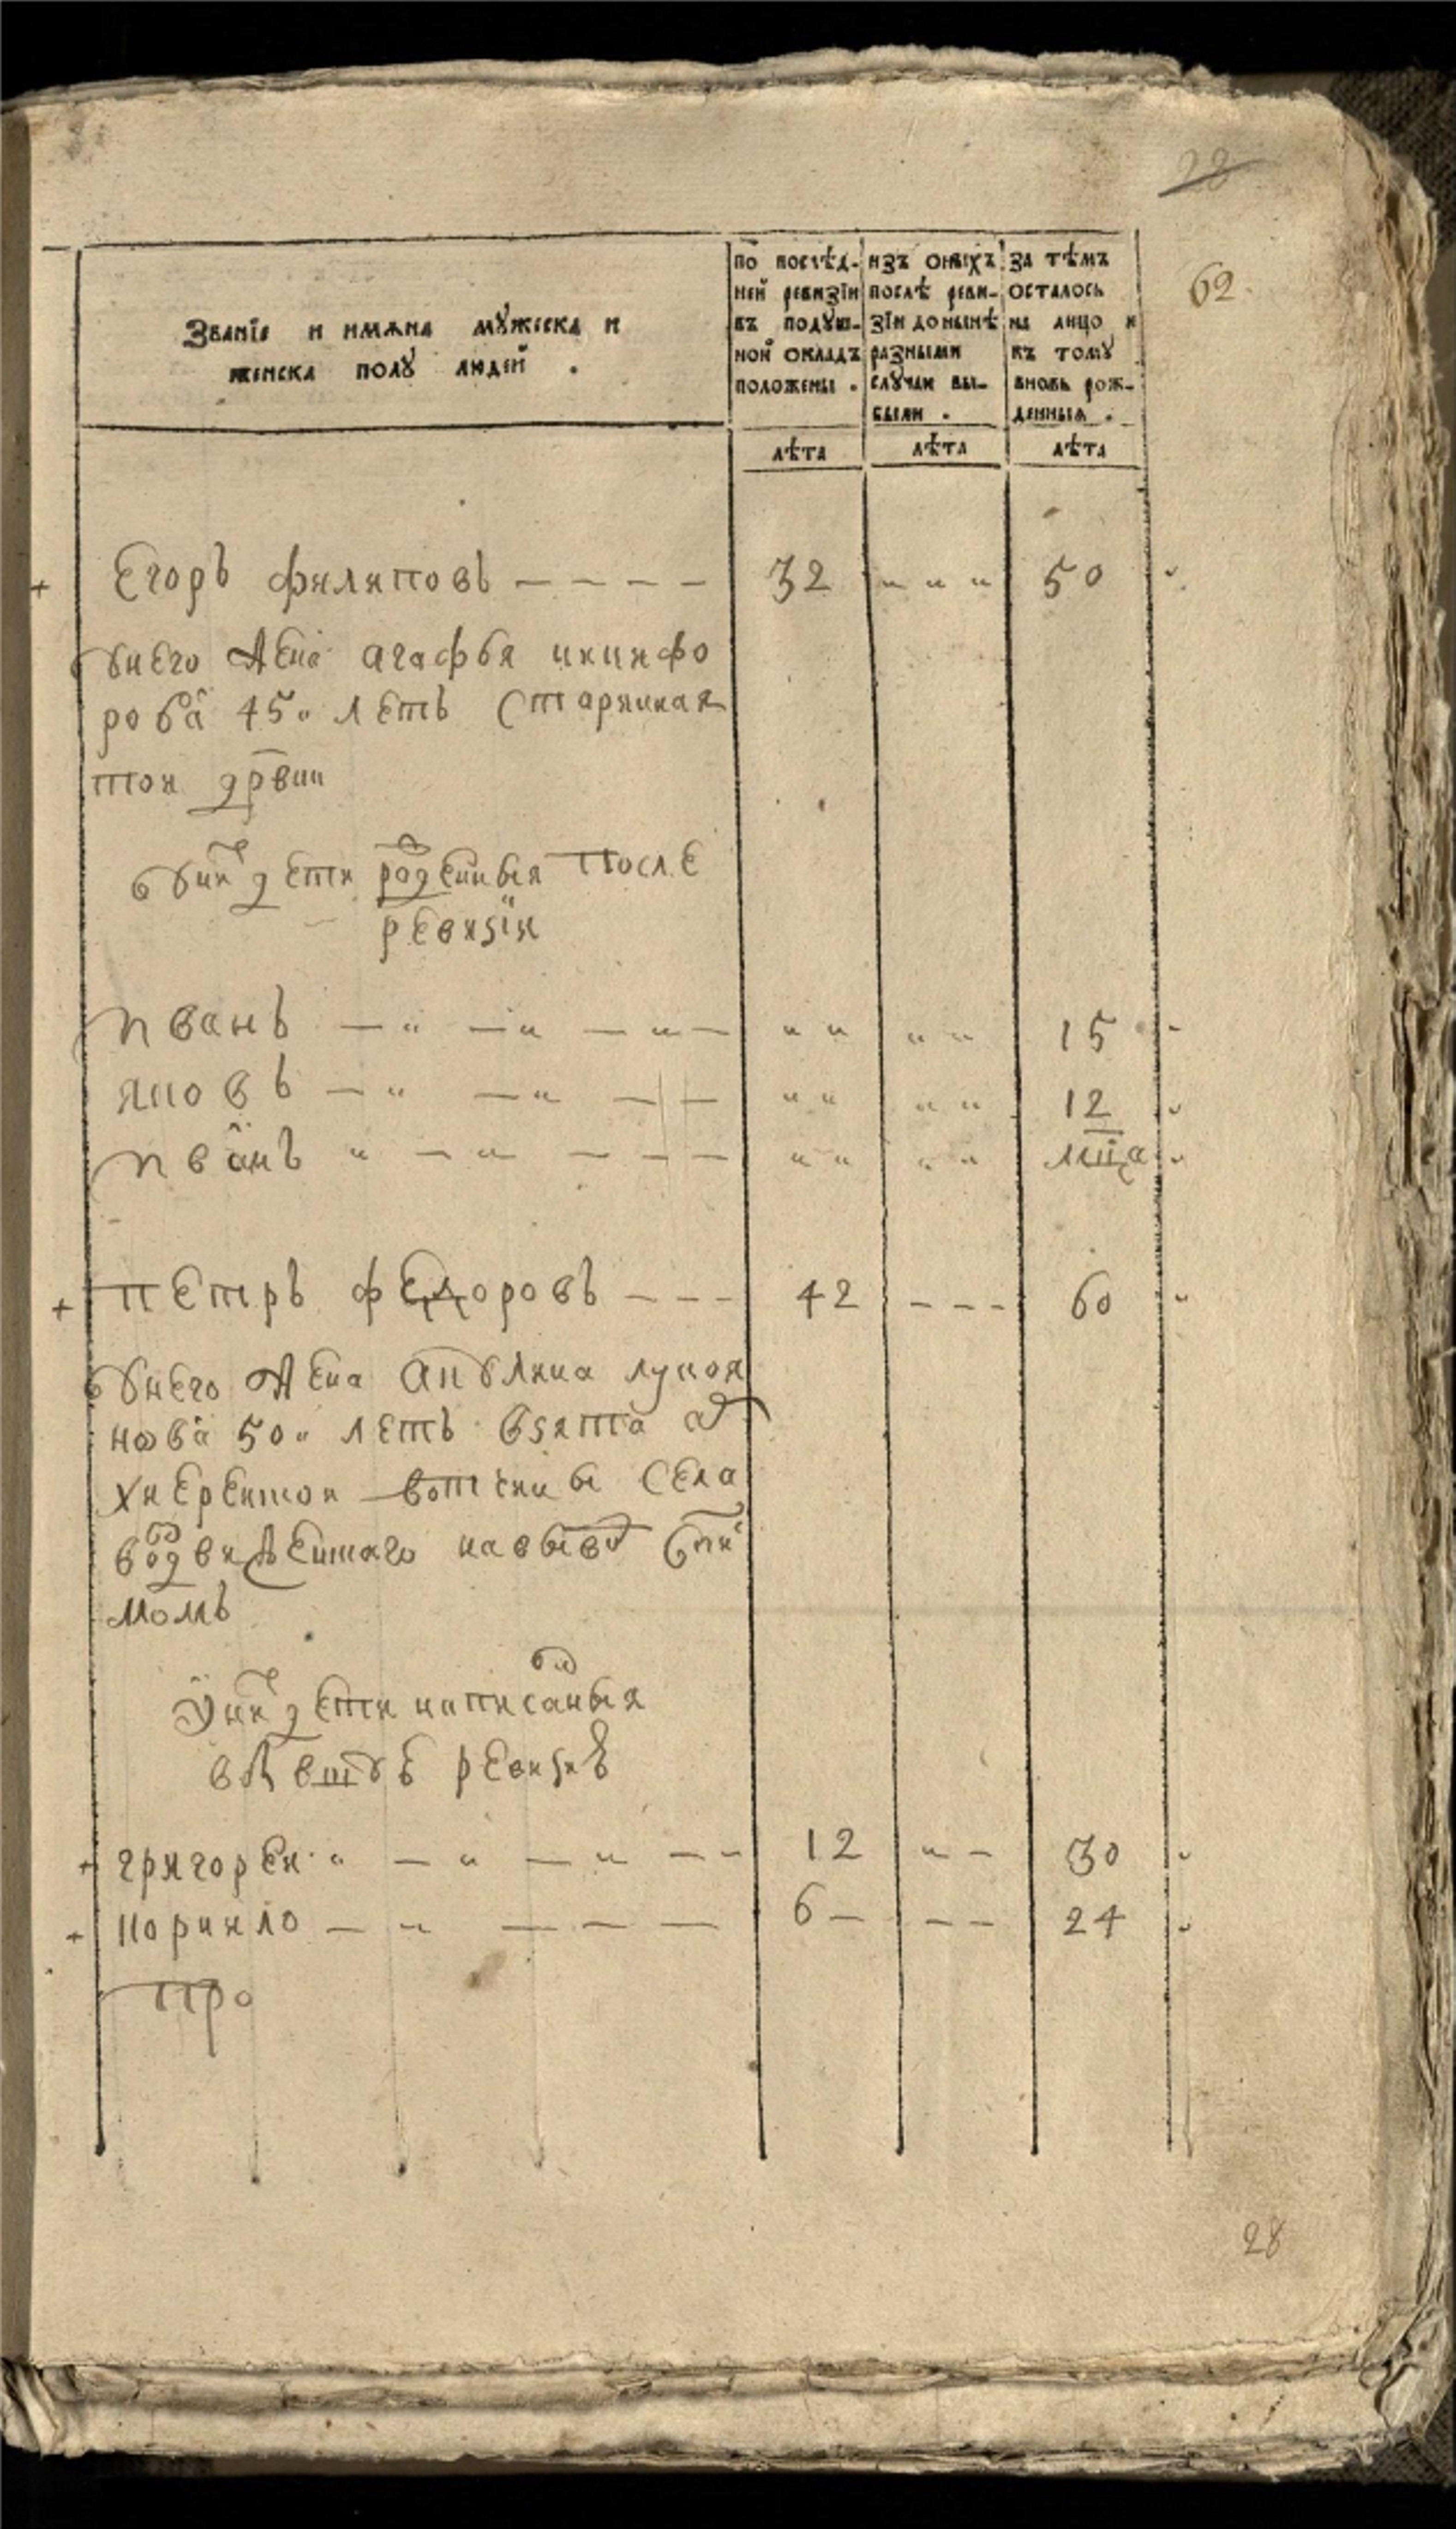 28
62
Званїе и имѧна мꙋжеска и
женска полꙋ людей .
по послѣд-
ней ревизїи
въ подꙋш-
ной окладъ
положены .
изъ оныхъ
послѣ реви-
зїи до нынѣ
разными
слꙋчаи вы-
были .
за тѣмъ
осталось
на лицо и
къ томꙋ
вновь рож-
денныѧ .
лѣта лѣта лѣта
Егоръ филиповъ 32 50
унего жена агафья никифо
рова 45 летъ старинная
тои дрвни
уних дети рожденныя после
ревизїи
иванъ 15
яковъ 12
иванъ мца
петръ федоровъ 42 60
унего жена лукоя
нова 50 летъ взята
вотчины села
момъ
уних дети написаныя
ревизие
григореи 12 30
корнило 6 24
про
28